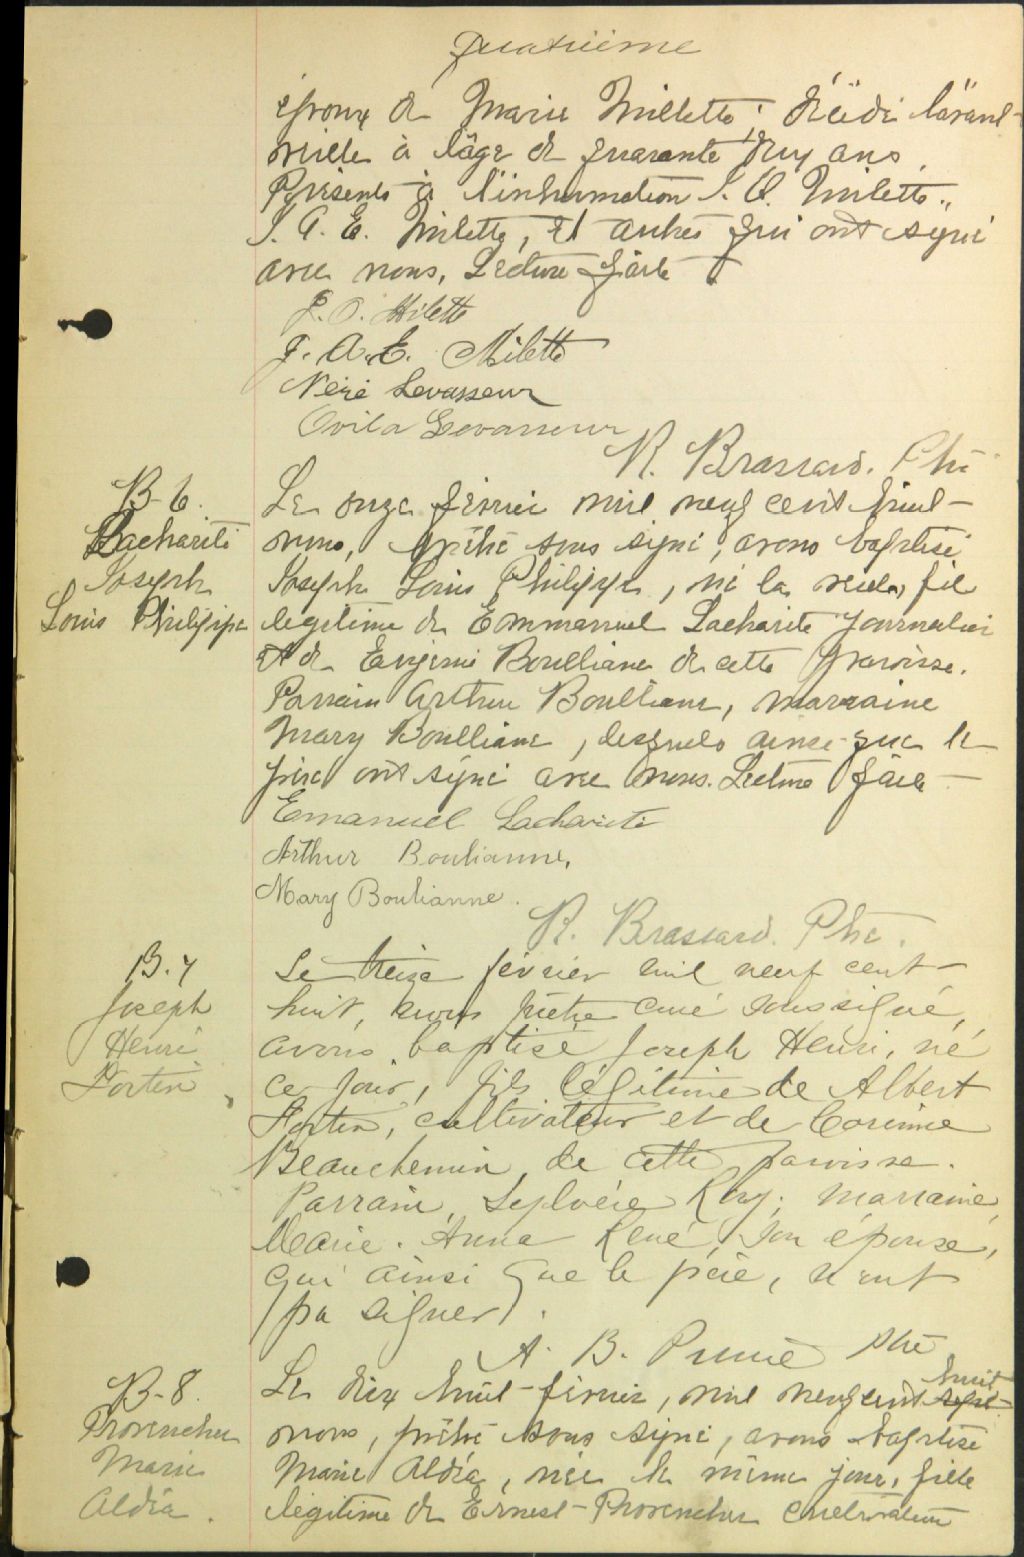 Quatrième
époux de Marie Millette; décédé l'avant-
veille à l'âge de quarante deux ans.
Présents à l'inhumation J. O. Milette,
J. A. E. Milette, et autres qui ont signé
avec nous. Lecture faite
J. O. Milette
J. A. E. Milette
Néré Levasseur
Ovila Levasseur
R. Brassard. Ptre
B-6.
Lacharité
Joseph
Louis Philippe
Le onze février mil neuf cent huit-
nous, prêtre sous signé, avons baptisé
Joseph Louis Philippe, né la veille, fils
legitime de Emmanuel Lacharité journalier
et de Eugenie Boulliane de cette paroisse.
Parrain Arthur Boulliane, marraine
Mary Boulliane, lesquels ainsi que le
père ont signé avec nous. Lecture faite
Emanuel Lacharité
Arthur Boulianne,
Mary Boulianne.
R. Brassard. Ptre.
B. 7
Joseph
Henri
Fortin
Le treize février mil neuf cent-
huit, nous prêtre curé soussigné,
avons baptisé Joseph Henri, né
ce jour, fils légitime de Albert
Fortin, cultivateur et de Corinne
Beauchemin, de cette paroisse.
Parrain, Sylvére Roy; marraine,
Marie-Anna René, son épouse,
qui ainsi que le père, n'ont
pu signer.
A. B. Prunè Ptre
B-8.
Provencher
Marie
Aldéa.
Le dix huit-février, mil neuf cent sept huit
nous, prêtre sous signé, avons baptisé
Marie Aldéa, née le même jour, fille
légitime de Ernest Provencher cultivateur